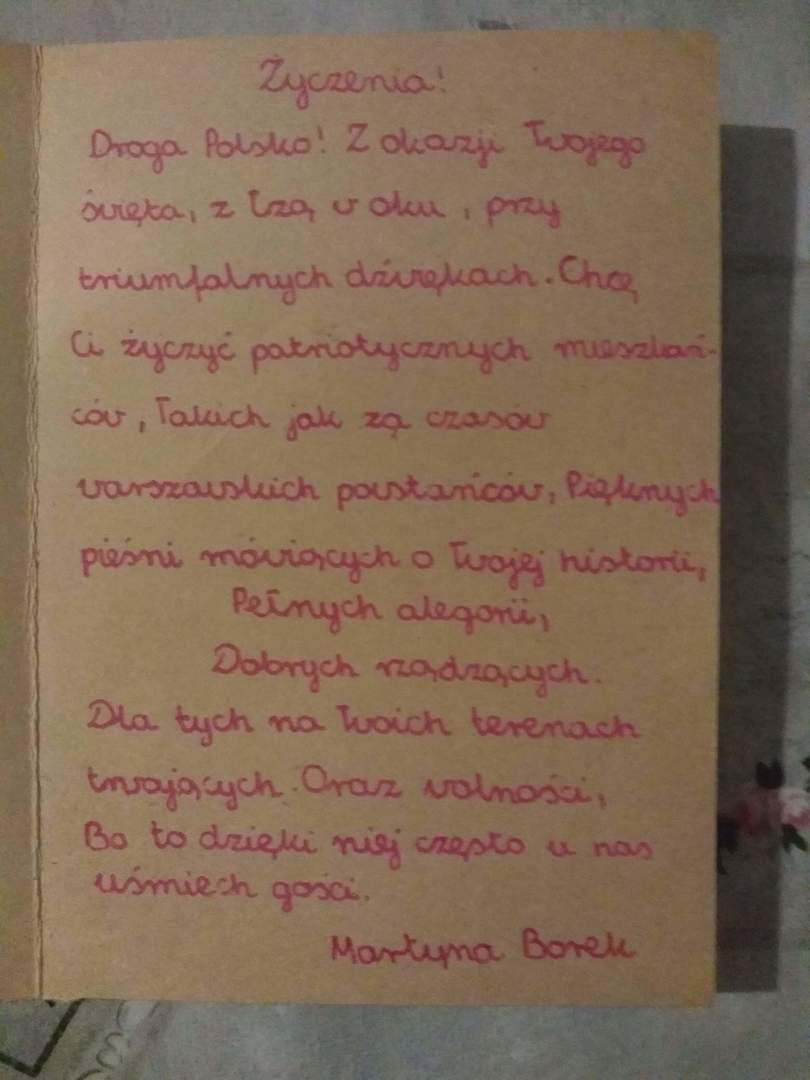 Życzenia!
Droga Polsko! Z okazji Twojego
święta, z łzą w oku, przy
triumfalnych dźwiękach. Chcę
Ci życzyć patriotycznych mieszkań-
ców, Takich jak zą czasów
warszawskich powstańców, Pięknych
pieśni mówiących o Twojej historii,
Pełnych alegorii,
Dobrych rządzących.
Dla tych na Twoich terenach
trwających. Oraz wolności,
Bo to dzięki niej często u nas
uśmiech gości.
Martyna Borek